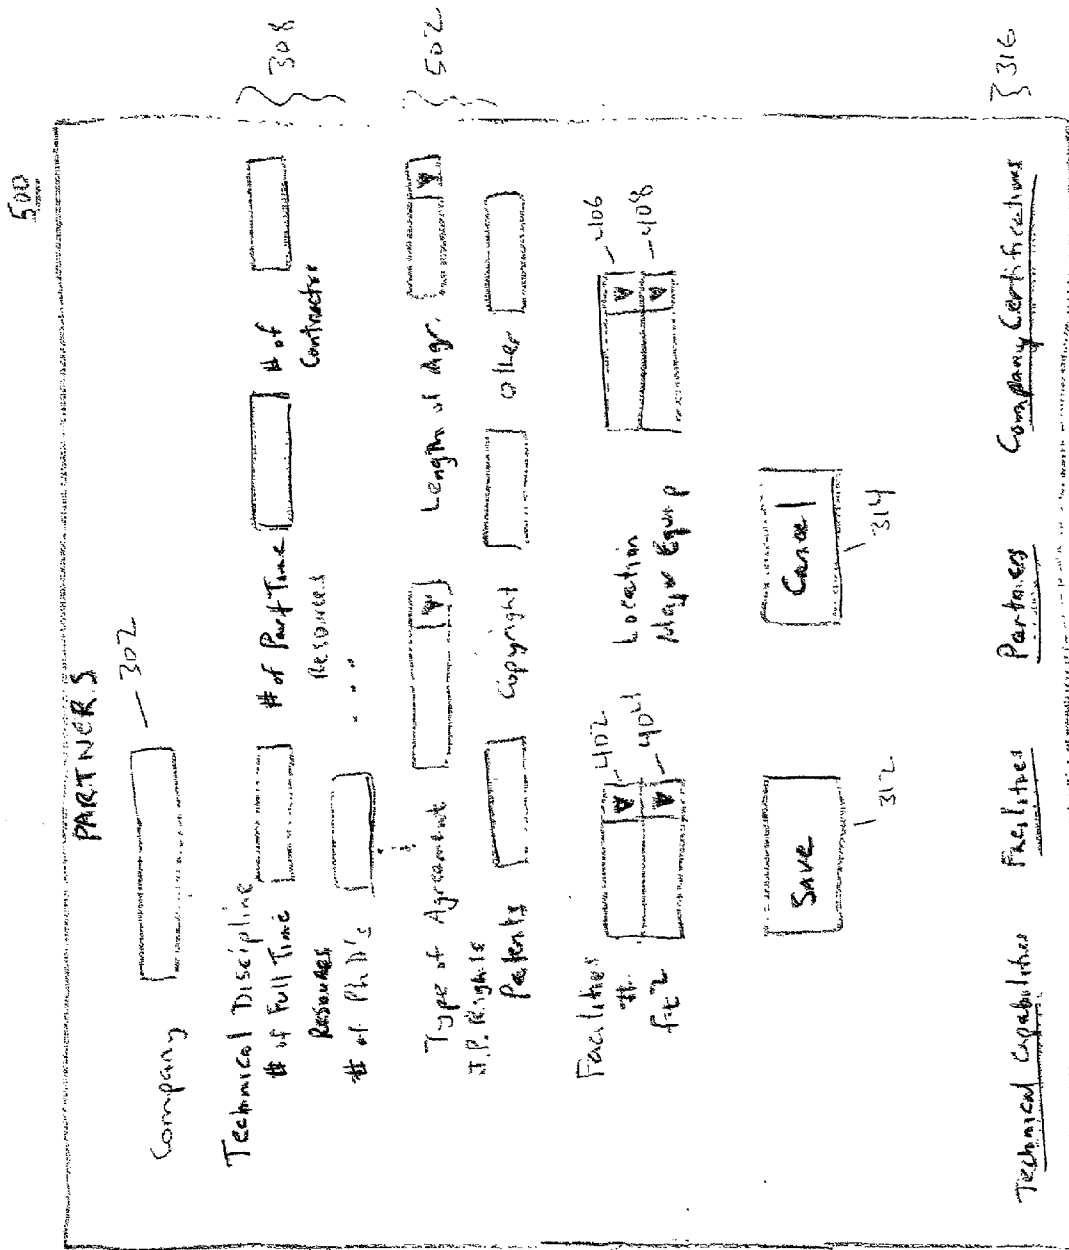 500
PARTNERS
Company — 302
Technical Discipline
# of Full Time # of Part Time # of
Resources Resources Contractor
308
# of Ph.D's ...
Type of Agreement Length of Agr.
502
I.P. Rights
Patents Copyright Other
Facilities
# 402 Location 406
Ft2 404 Major Equip 408
Save Cancel
312 314
Technical Capabilities Facilities Partners Company Certifications 316